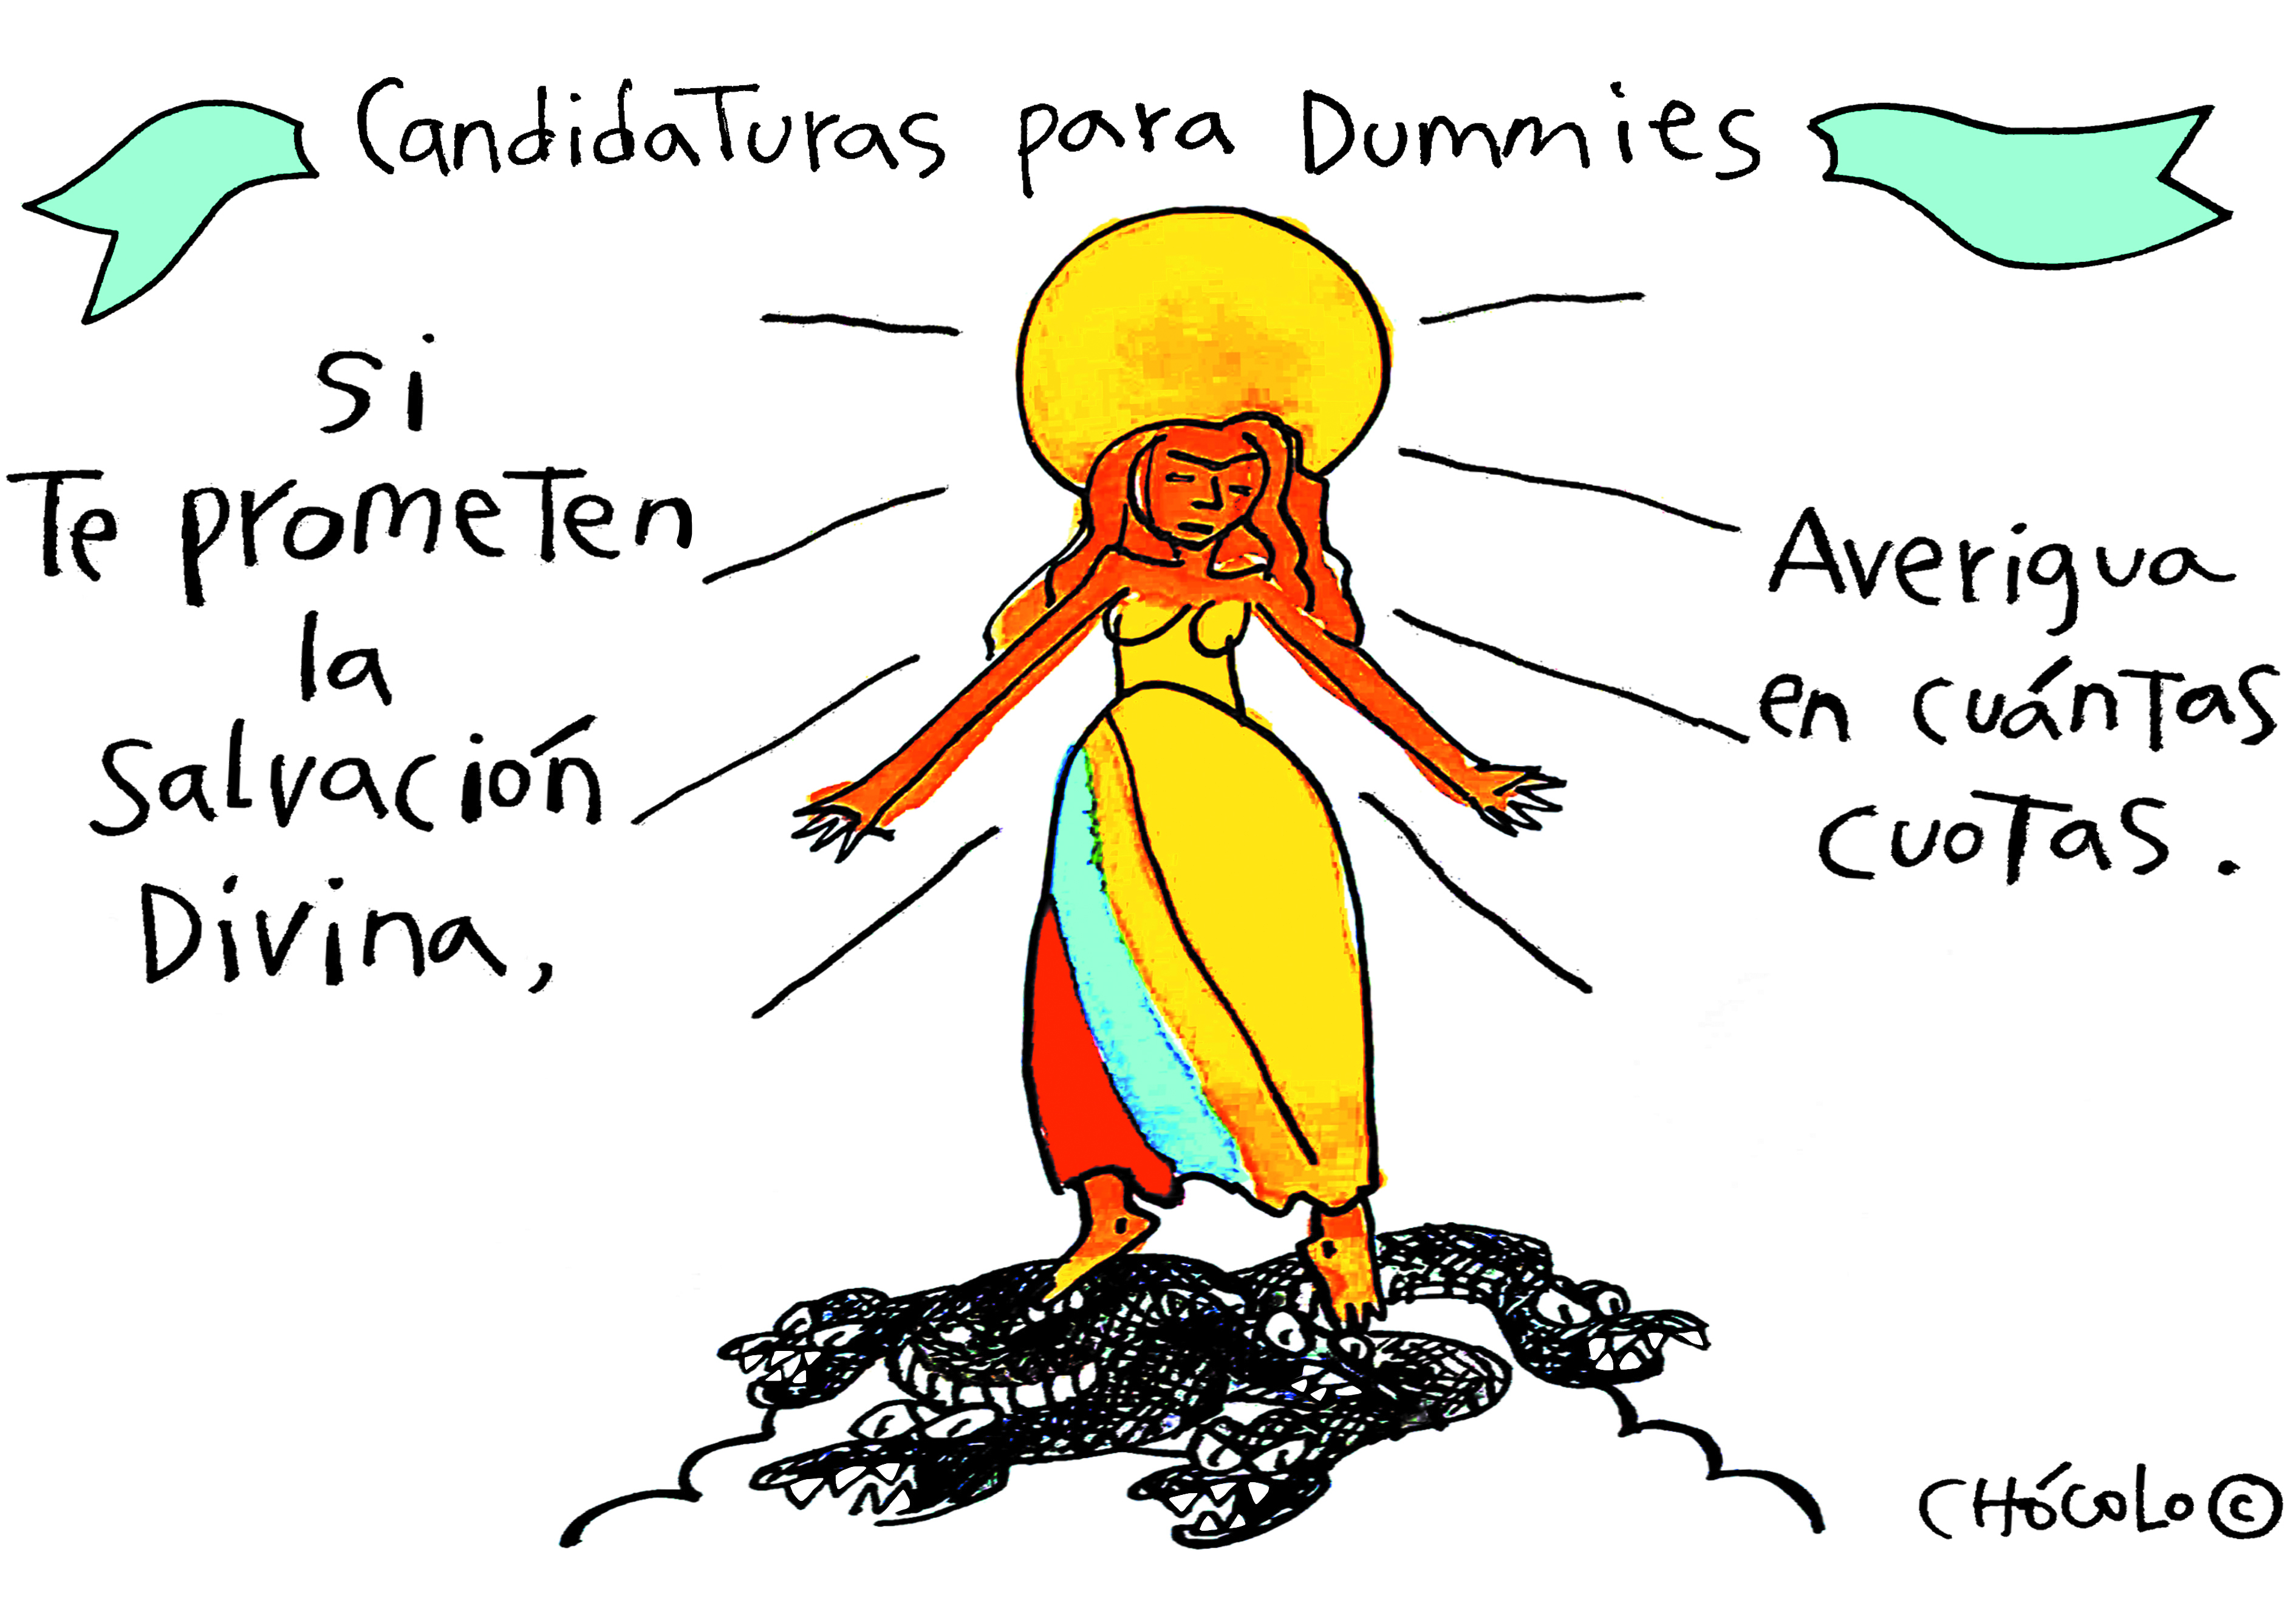 Candidaturas para Dummies
Si
Te prometen
la
Salvación
Divina,
Averigua
en cuántas
cuotas.
CHóColo ©